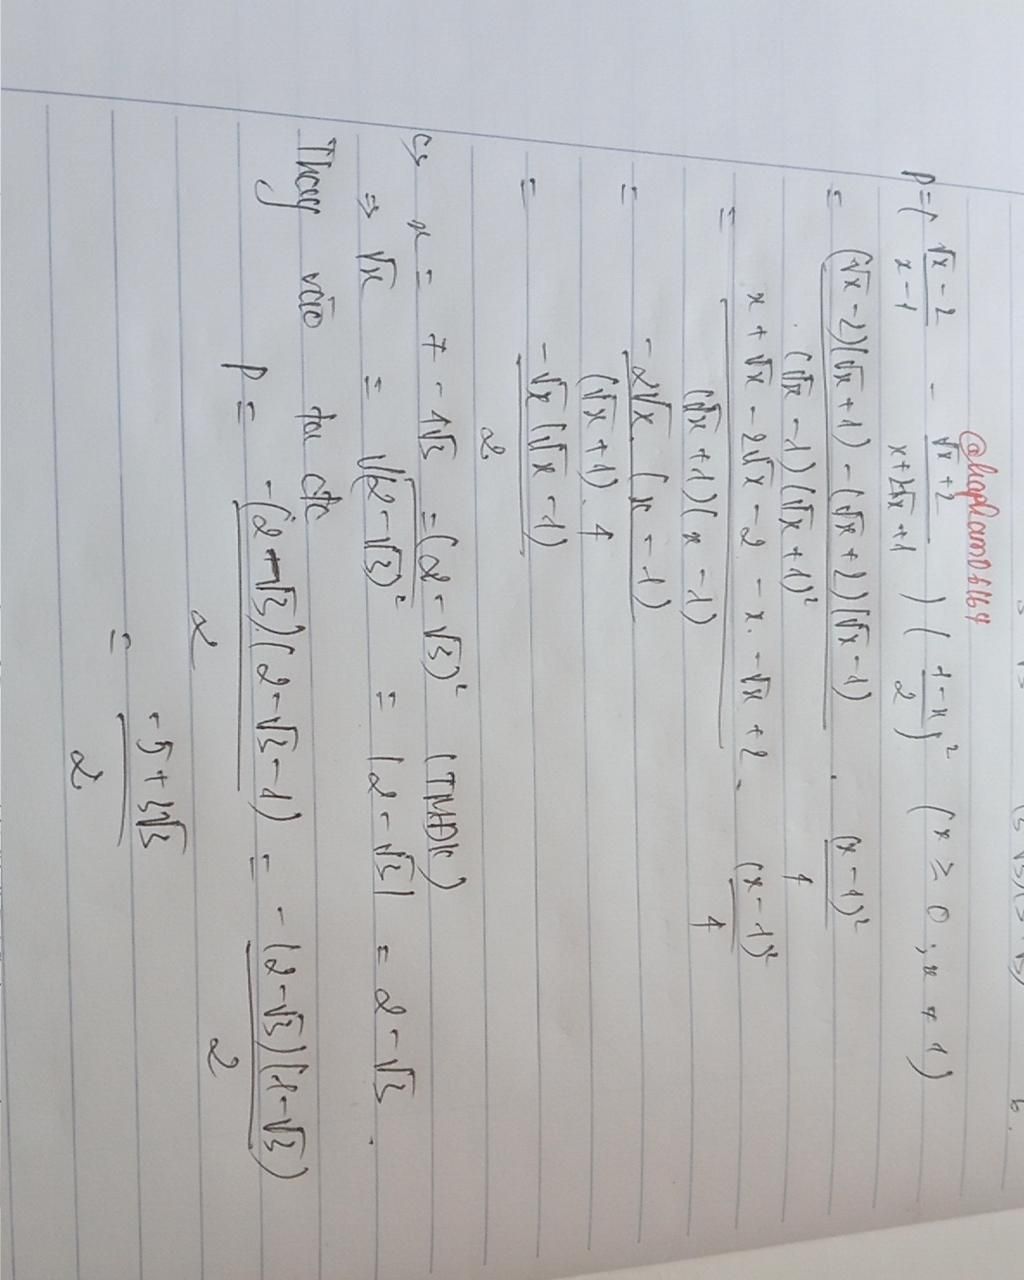 @hapham06164
P = ( \frac{√x - 2}{x - 1} - \frac{√x + 2}{x + 2√x + 1} ) ( \frac{1 - x}{2} )² ( x ≥ 0 ; x ≠ 1 )
= \frac{(√x - 2)(√x + 1) - (√x + 2)(√x - 1)}{(√x - 1)(√x + 1)²} . \frac{(x - 1)²}{4}
= \frac{x + √x - 2√x - 2 - x - √x + 2}{(√x + 1)(x - 1)} . \frac{(x - 1)²}{4}
= \frac{-2√x (x - 1)}{(√x + 1) . 4}
= \frac{-√x (√x - 1)}{2}
c, x = 7 - 4√3 = (2 - √3)² (TMĐK)
⇒ √x = √(2 - √3)² = |2 - √3| = 2 - √3 .
Thay vào ta đc
P = \frac{-(2 - √3)(2 - √3 - 1)}{2} = \frac{-(2 - √3)(1 - √3)}{2}
= \frac{-5 + 3√3}{2}